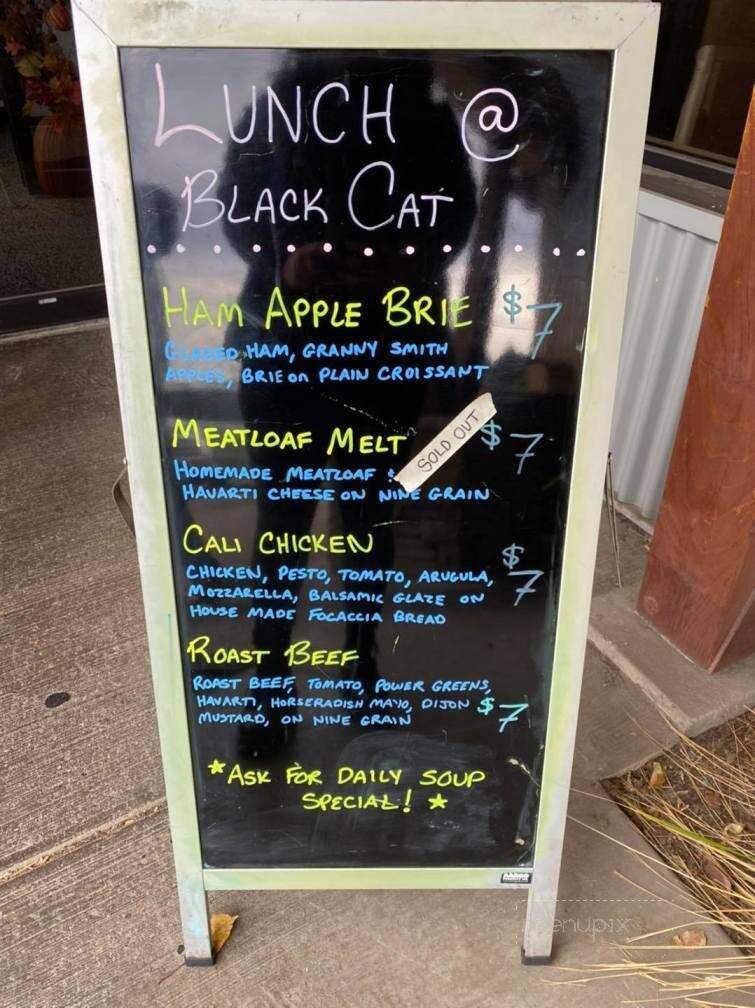 LUNCH @
BLACK CAT
HAM APPLE BRIE $7
GLAZED HAM, GRANNY SMITH
APPLES, BRIE on PLAIN CROISSANT
MEATLOAF MELT $7
SOLD OUT
HOMEMADE MEATLOAF
HAVARTI CHEESE ON NINE GRAIN
CALI CHICKEN $7
CHICKEN, PESTO, TOMATO, ARUGULA,
MOZZARELLA, BALSAMIC GLAZE ON
HOUSE MADE FOCACCIA BREAD
ROAST BEEF
ROAST BEEF, TOMATO, POWER GREENS,
HAVARTI, HORSERADISH MAYO, DIJON $7
MUSTARD, ON NINE GRAIN
*ASK FOR DAILY SOUP
SPECIAL! *
menupix